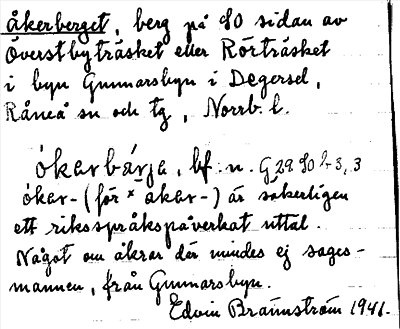 åkerberget, berg på SO sidan av
Överstbyträsket eller Rörträsket
i byn Gunnarsbyn i Degersel,
Råneå sn och tg, Norrb. l.
ókarbárja, bf. n. G 29 SO h 3,3
ókar- (för × akar-) är säkerligen
ett riksspråkspåverkat uttal.
Något om åkrar där mindes ej sages-
mannen, från Gunnarsbyn.
Edvin Brännström 1941.